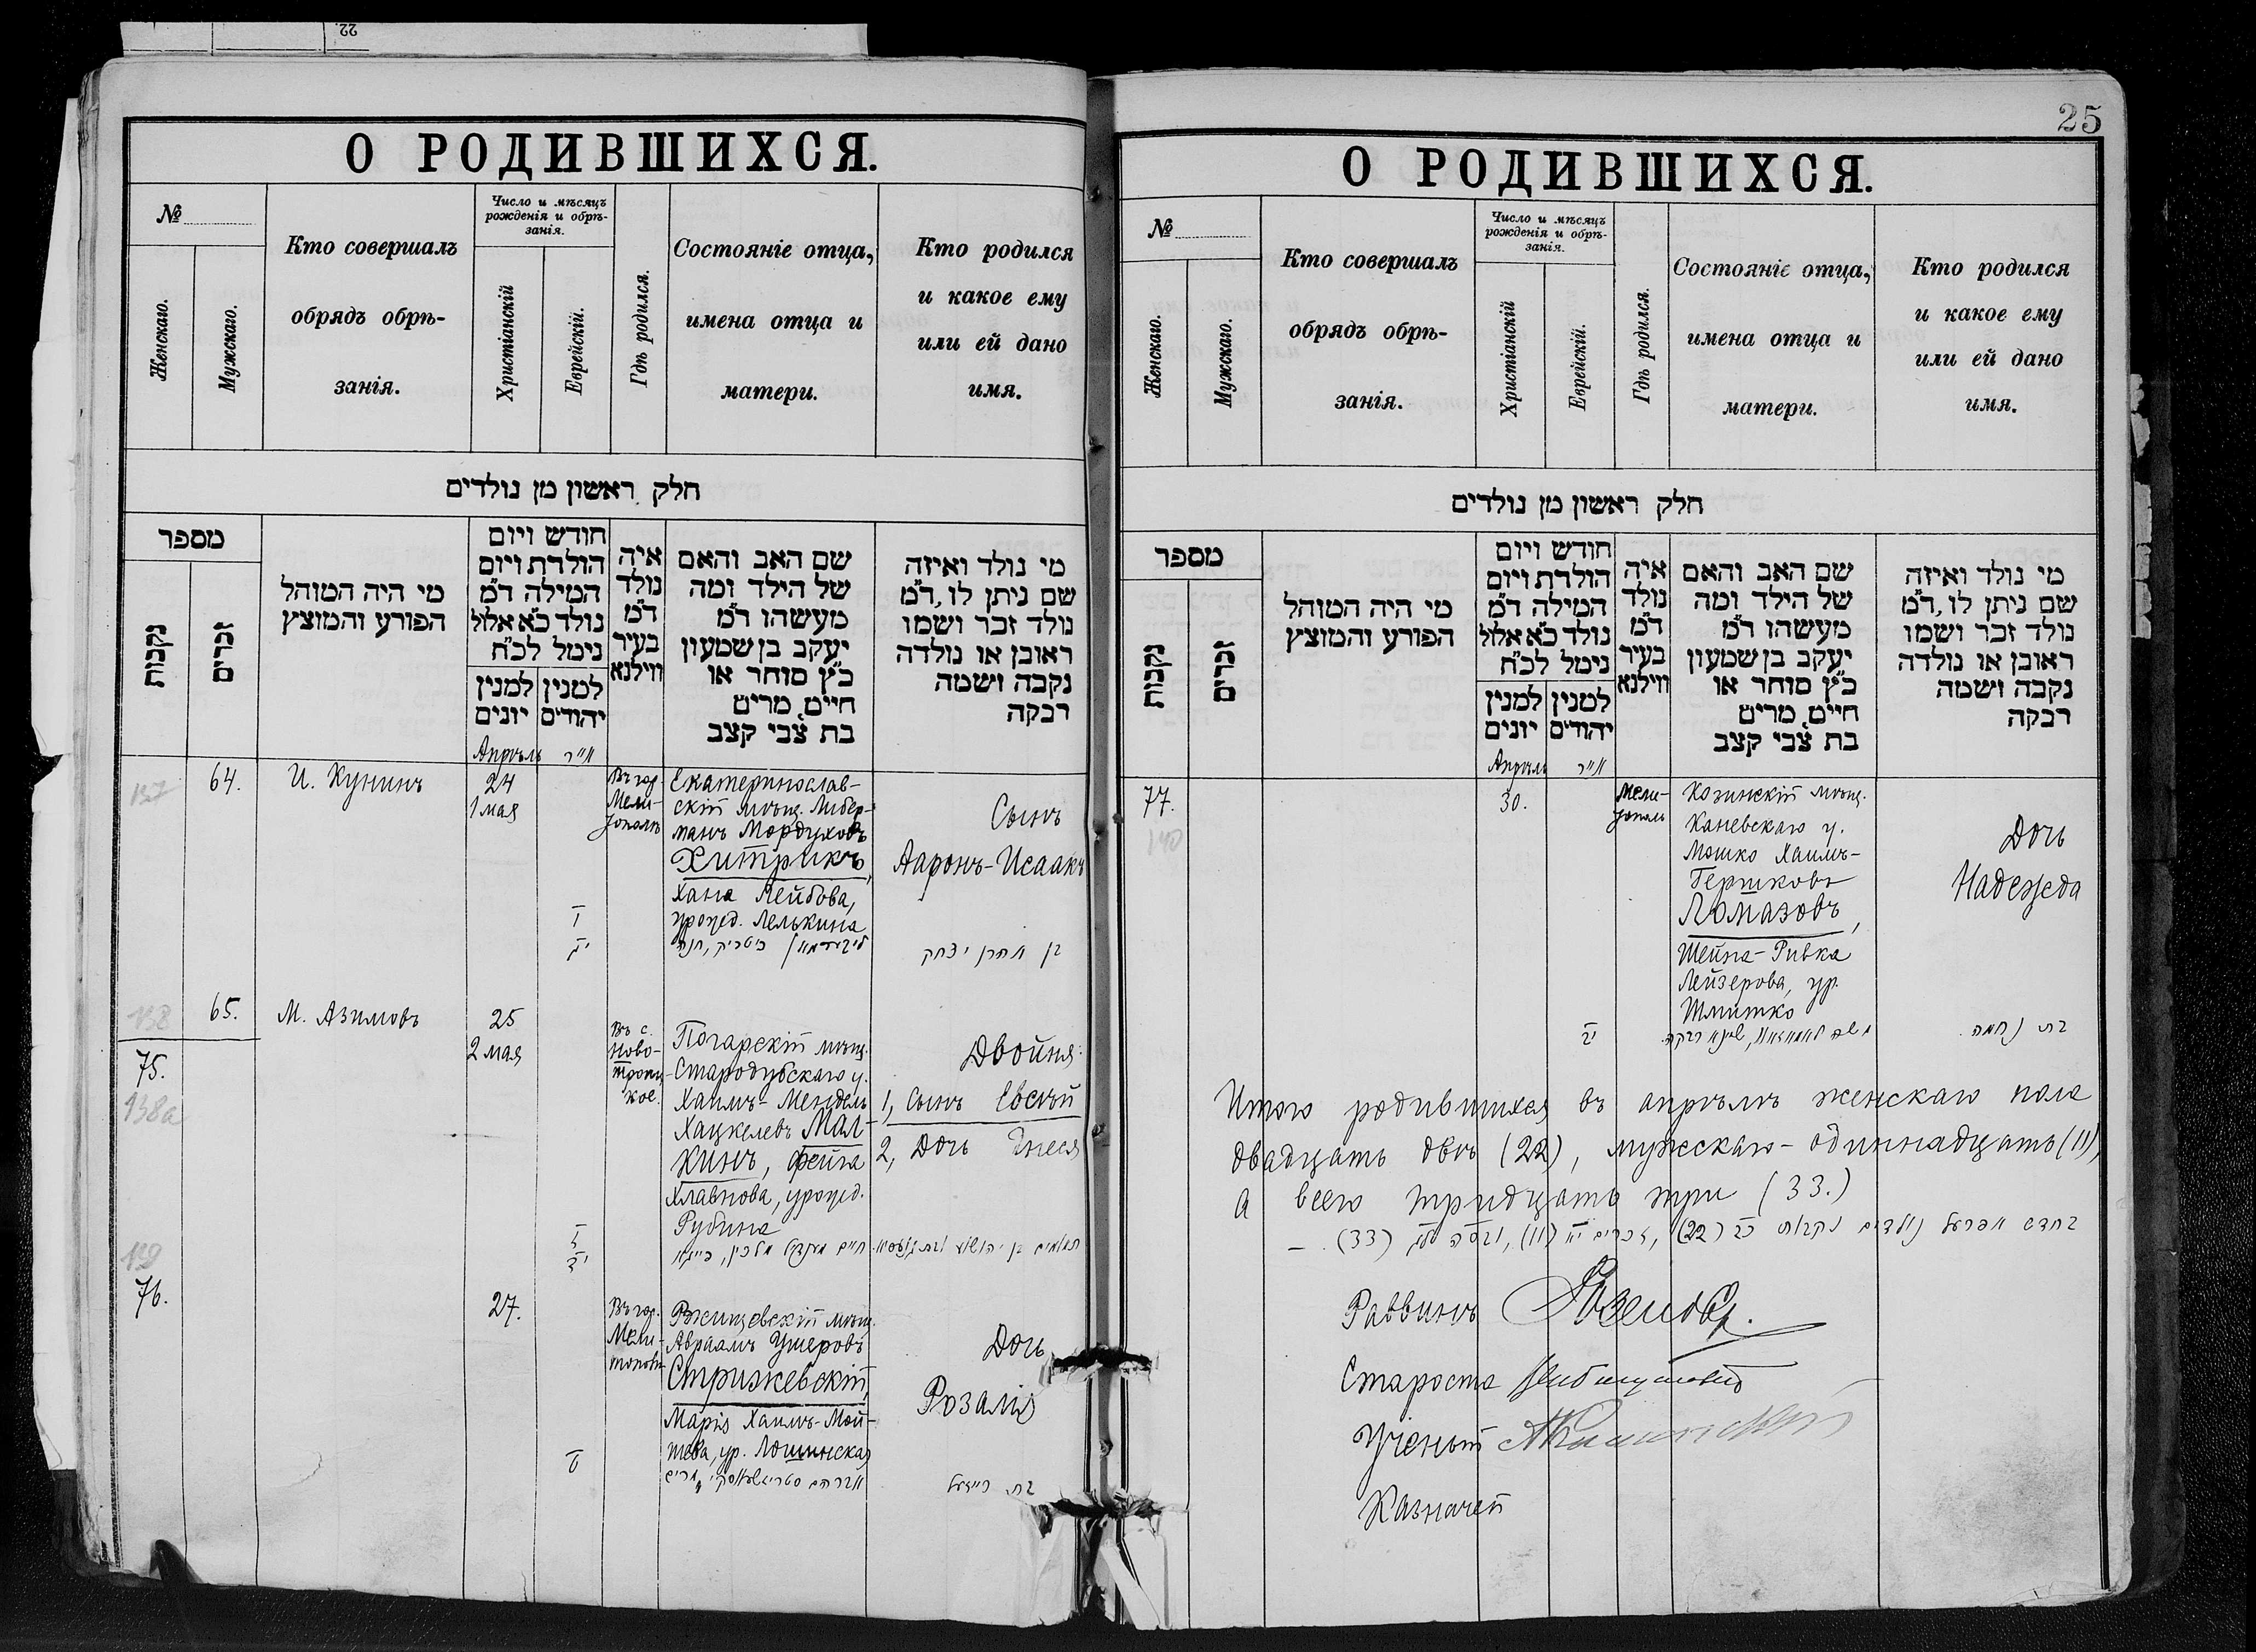 22
О РОДИВШИХСЯ.
№
Женскаго.
Мужскаго.
Кто совершалъ
обрядъ обрѣ-
занія.
Число и мѣсяцъ
рожденія и обрѣ-
занія.
Христіанскій
Еврейскій.
Гдѣ родился.
Состояніе отца,
имена отца и
матери.
Кто родился
и какое ему
или ей дано
имя.
חלק ראשון מן נולדים
מספר
נקבות
זכרים
מי היה המוהל
הפורע והמוצץ
חודש ויום
הולדת ויום
המילה ד"מ
נולד כ"א אלול
נימל לכ"ח
למנין יונים
למנין יהודים
איה
נולד
ד"מ
בעיר
ווילנא
שם האב והאם
של הילד ומה
מעשהו ד"מ
יעקב בן שמעון
כ"ץ סוחר או
חיים, מרים
בת צבי קצב
מי נולד ואיזה
שם ניתן לו, ד"מ
נולד זכר ושמו
ראובן או נולדה
נקבה ושמה
רבקה
Апрѣль
אייר
137
64.
И. Кунинъ
24
1 мая
Въ гор.
Мели-
тополѣ
Екатеринослав-
скій мѣщ. Либер-
манъ Мордуховъ
Хитрикъ,
Хана Лейбова,
урожд. Лелькина
ליבערמאן כיטריק, חנה
Сынъ
Ааронъ-Исаакъ
בן אהרן יצחק
138
65.
75.
138а
М. Азимовъ
25
2 мая
Въ с.
Ново-
троиц-
кое.
Погарскій мѣщ.
Стародубскаго у.
Хаимъ-Мендель
Хацкелевъ Мал-
кинъ, Фейга
Хлавнова, урожд.
Рубина
חיים מענדל מלכין, פייגא
Двойня:
1, Сынъ Евсѣй
2, Дочь Энеся
139
76.
27.
Въ гор.
Мели-
тополѣ
Ржищевскій мѣщ.
Авраамъ Ушеровъ
Стрижевскій,
Марія Хаимъ-Мой-
шева, ур. Лошинская
אברהם סטרישעווסקי, מרים
Дочь
Розалія
בת רייזעל
25
О РОДИВШИХСЯ.
№
Женскаго.
Мужскаго.
Кто совершалъ
обрядъ обрѣ-
занія.
Число и мѣсяцъ
рожденія и обрѣ-
занія.
Христіанскій
Еврейскій.
Гдѣ родился.
Состояніе отца,
имена отца и
матери.
Кто родился
и какое ему
или ей дано
имя.
חלק ראשון מן נולדים
מספר
נקבות
זכרים
מי היה המוהל
הפורע והמוצץ
חודש ויום
הולדת ויום
המילה ד"מ
נולד כ"א אלול
נימל לכ"ח
למנין יונים
למנין יהודים
איה
נולד
ד"מ
בעיר
ווילנא
שם האב והאם
של הילד ומה
מעשהו ד"מ
יעקב בן שמעון
כ"ץ סוחר או
חיים, מרים
בת צבי קצב
מי נולד ואיזה
שם ניתן לו, ד"מ
נולד זכר ושמו
ראובן או נולדה
נקבה ושמה
רבקה
Апрѣль
אייר
77.
140
30.
Мели-
тополь
Козинскій мѣщ.
Каневскаго у.
Мошко Хаимъ-
Гершковъ
Ломазовъ,
Шейна-Ривка
Лейзерова, ур.
Шмитко
משה לאמאזאוו, שיינא רבקה
Дочь
Надежда
בת נחמה
Итого родившихся въ апрѣлѣ женскаго пола
двадцать двѣ (22), мужскаго - одиннадцать (11),
а всего тридцать три (33.)
בחדש אפריל נולדים נקבות כב (22), זכרים יא (11), (33)
Раввинъ
Староста
Ученый
Казначей